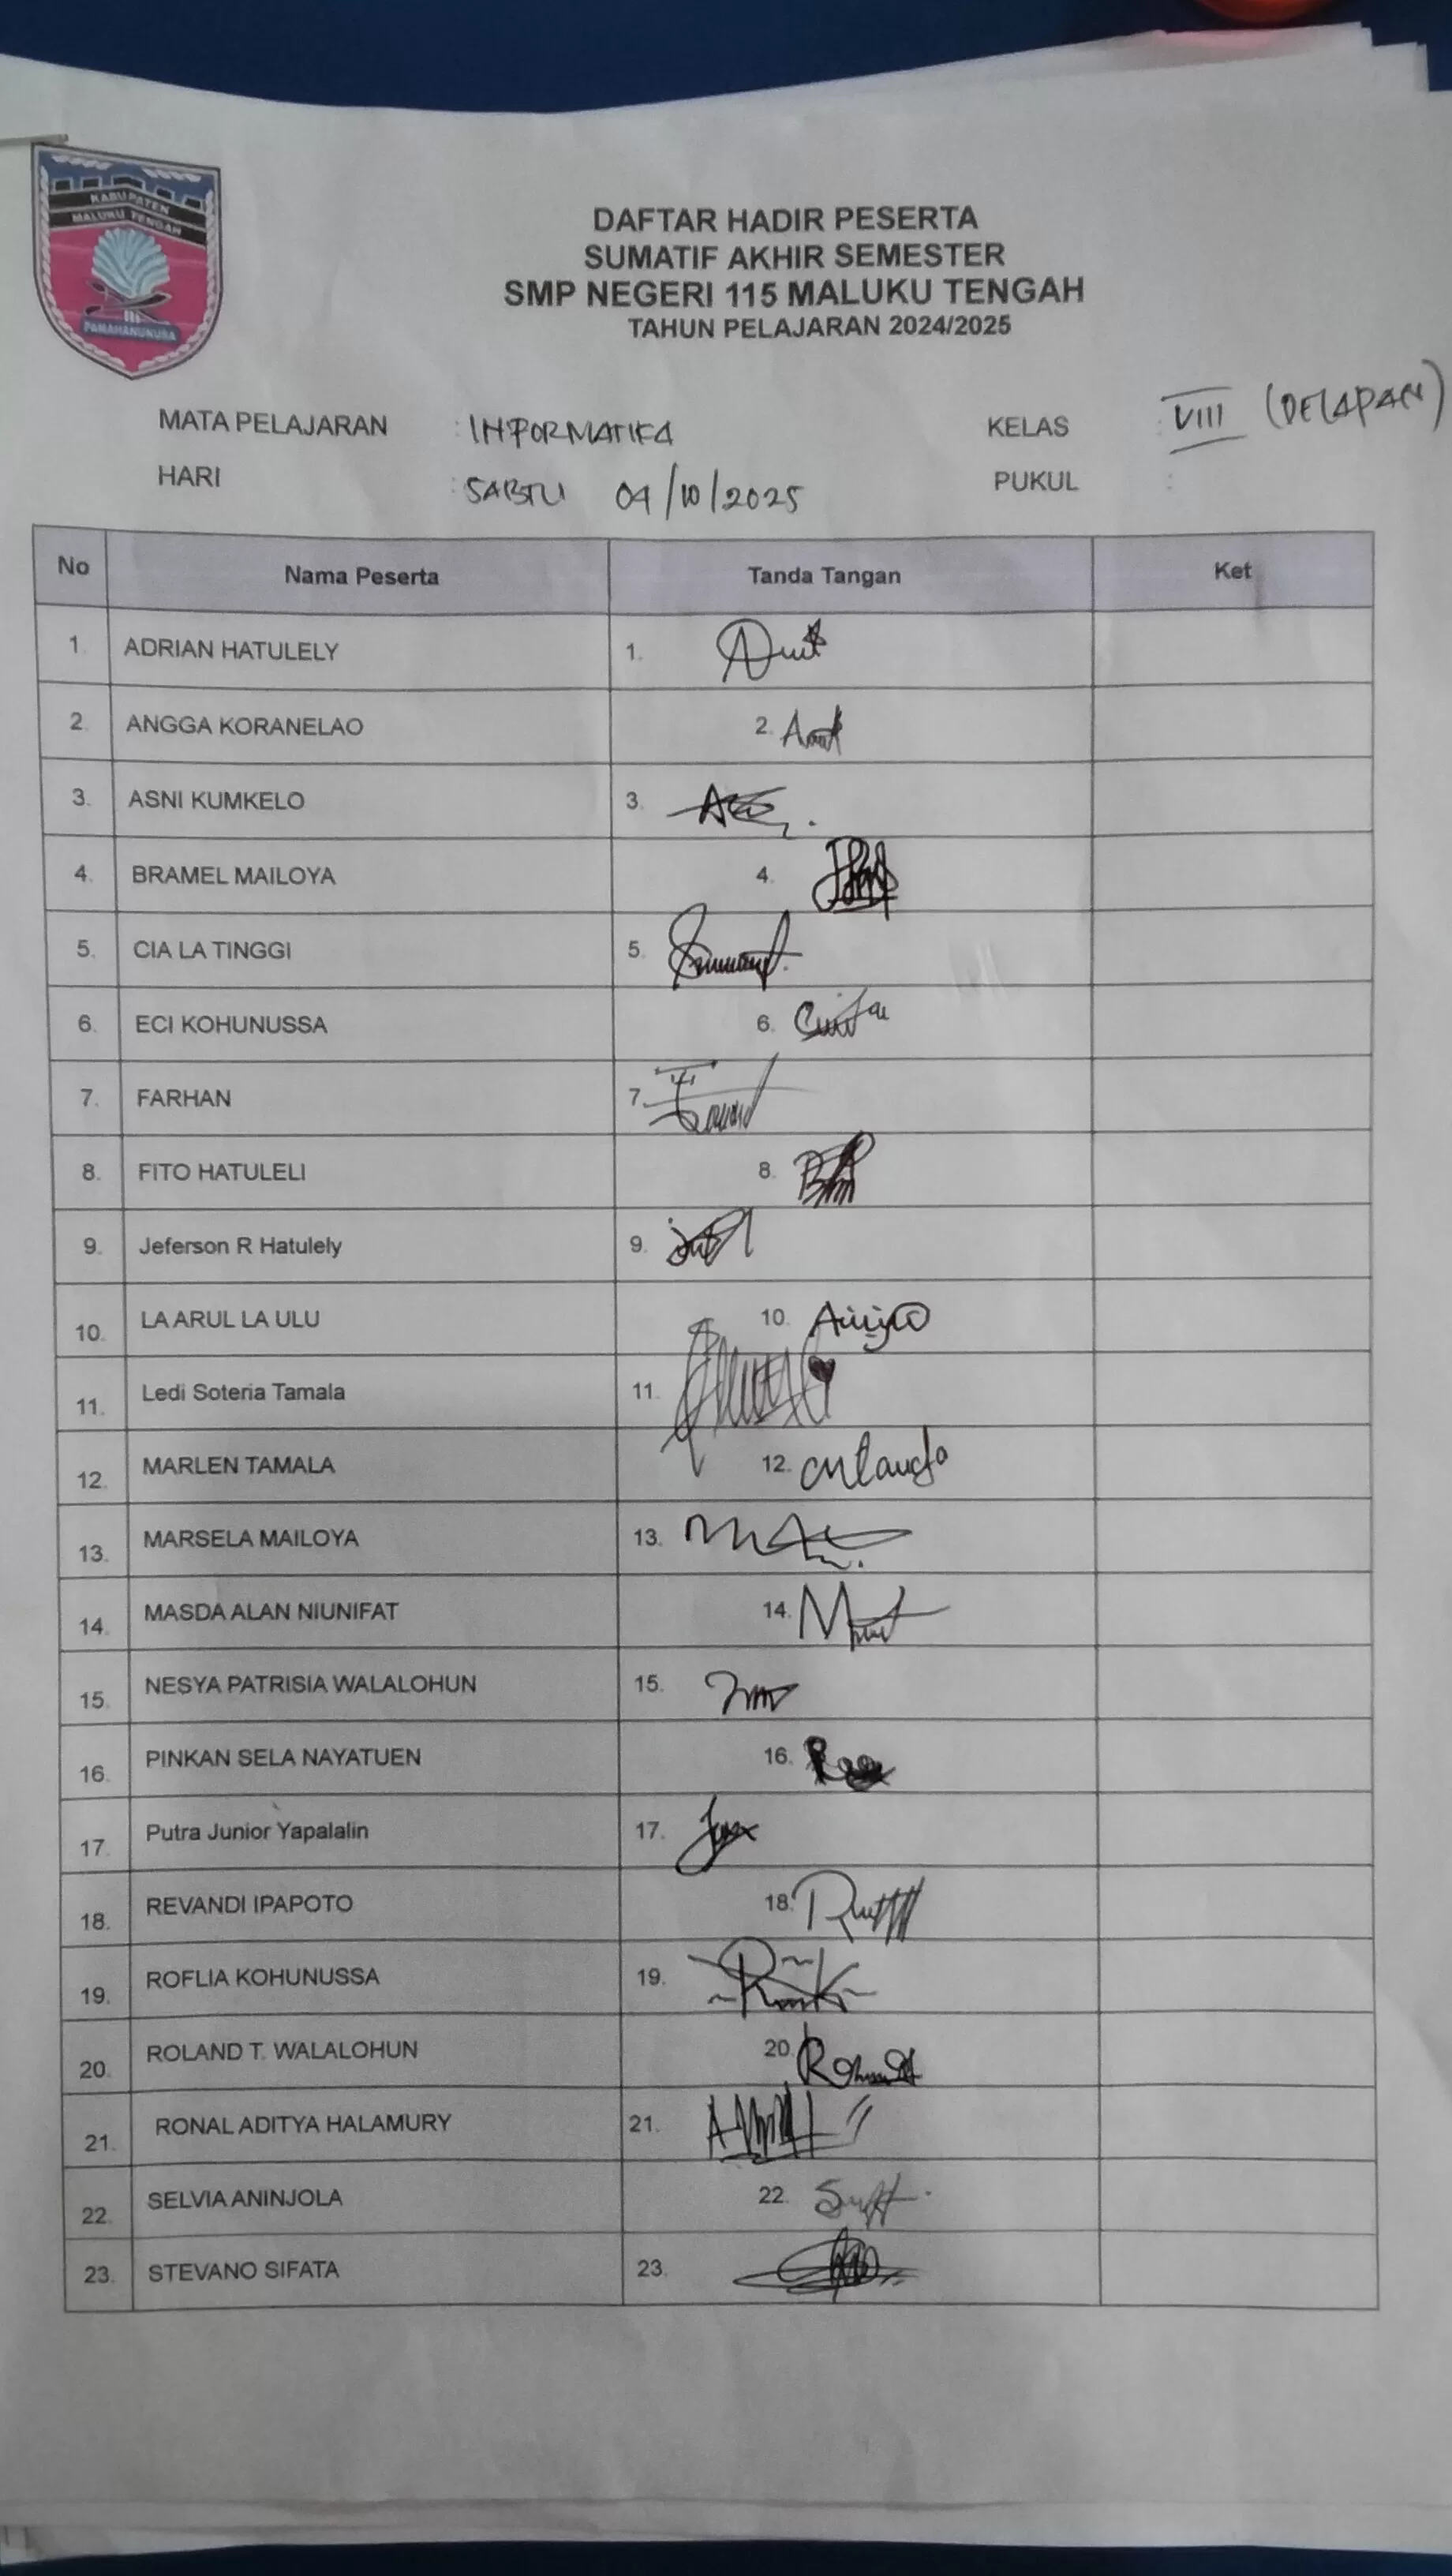 KABUPATEN
MALUKU TENGAH
PAMAHANUNUSA
DAFTAR HADIR PESERTA
SUMATIF AKHIR SEMESTER
SMP NEGERI 115 MALUKU TENGAH
TAHUN PELAJARAN 2024/2025
MATA PELAJARAN : INFORMATIKA KELAS : VIII (DELAPAN)
HARI : SABTU 04/10/2025 PUKUL :
No Nama Peserta Tanda Tangan Ket
1. ADRIAN HATULELY 1.
2. ANGGA KORANELAO 2.
3. ASNI KUMKELO 3.
4. BRAMEL MAILOYA 4.
5. CIA LA TINGGI 5.
6. ECI KOHUNUSSA 6.
7. FARHAN 7.
8. FITO HATULELI 8.
9. Jeferson R Hatulely 9.
10. LA ARUL LA ULU 10.
11. Ledi Soteria Tamala 11.
12. MARLEN TAMALA 12.
13. MARSELA MAILOYA 13.
14. MASDA ALAN NIUNIFAT 14.
15. NESYA PATRISIA WALALOHUN 15.
16. PINKAN SELA NAYATUEN 16.
17. Putra Junior Yapalalin 17.
18. REVANDI IPAPOTO 18.
19. ROFLIA KOHUNUSSA 19.
20. ROLAND T. WALALOHUN 20.
21. RONAL ADITYA HALAMURY 21.
22. SELVIA ANINJOLA 22.
23. STEVANO SIFATA 23.